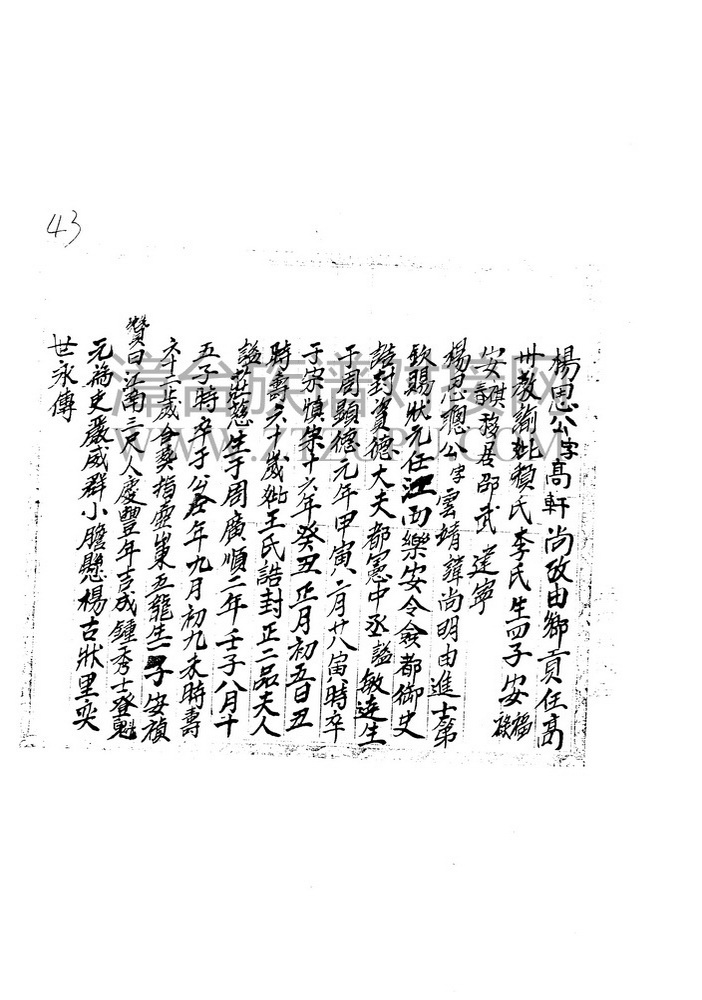 43
楊思公字高軒尚政由鄉貢任高
州教諭妣賴氏李氏生四子安福祿
安禎移居邵武建寧
楊思聰公字雲靖諱尚明由進士第
欽賜狀元任江西樂安令僉都御史
誥封資德大夫都憲中丞謚敏達生
于周顯德元年甲寅八月廿八寅時卒
于宋慎宗十六年癸丑正月初五日丑
時壽六十歲妣王氏誥封正二品夫人
謚莊慈生于周廣順二年壬子八月十
五子時卒于公年九月初九未時壽
六十二歲合葬指壺東五龍生一子安禎
贊曰江南三尺人慶豐年吉成鍾秀士登魁
元為史嚴威群小膽懸楊古狀里奕
世永傳
漳台族譜對接網
WWW.ZTZUPU.COM